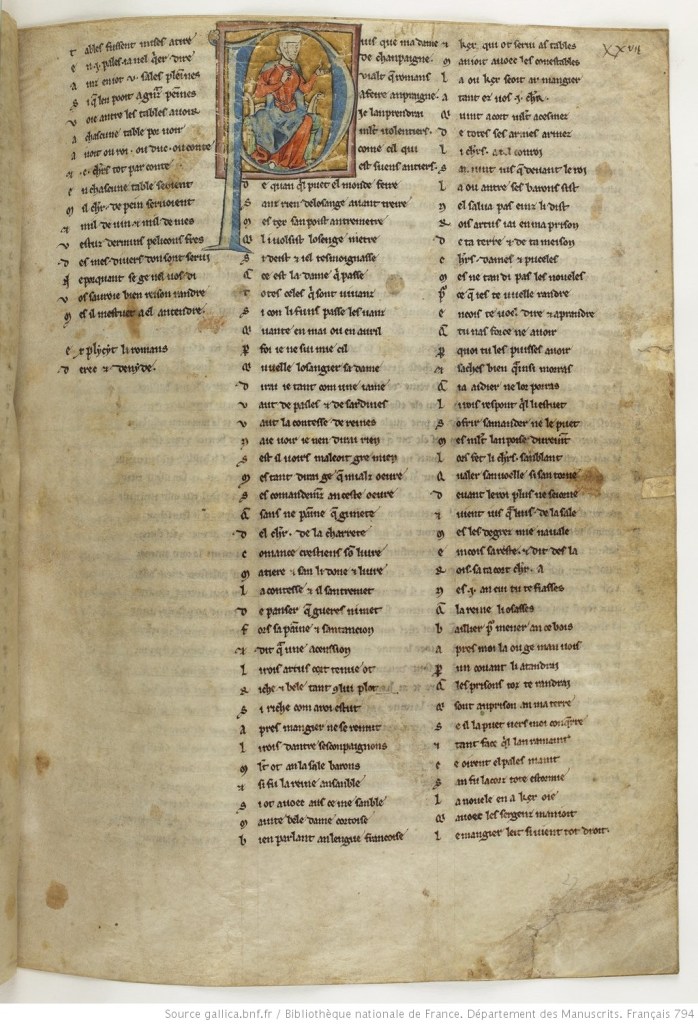 XXVII
T ables fussent mises atire
E n .i. pales ia nel q̄er dire
A inz en i ot .v. sales pleinnes
S i q̄ len pooit a grant poinnes
V oie antre les tables avoir
A chascune table por voir
A voit ou roi ou duc ou conte
.c. chr̄s tot par conte
E n chascune table seoient
M il chr̄. de pein servoient
mil de vin & mil de mes
V estuz dermins pelicons fres
D es mes divers don sont servi
N eporquant se ge nel vos di
V os savroie bien reison randre
M es il mestuet a el antendre.
E xplycyt li romans
D erec & denyde.
P uis que ma dame
de chanpaigne.
Vialt q̄ romans
a feire anpraigne.
Je lanprendrai
mlt̄ volentiers.
come cil qui
est suens antiers.
D e quan q̄l puet el monde feire
S anz rien de losange avant treire
M es tex san poist antremetre
Q i i volsist losenge metre
S i deist & iel tesmoignasse
Q ce est la dame q̄ passe
T otes celes q̄ sont vivanz
S i con li funs passe les vanz
Q i vante en mai ou en avril
P foi ie ne sui mie cil
Q i vuelle losangier sa dame
D irai ie tant com une iame
V aut de pailes & de sardines
V aut la contesse de reines
N aie voir ie nen dirai rien
S est il voirs maleoit gre mien
M es tant dirai ge q̄ mialz oevre
S es comandemenz an ceste oevre
Q sans ne painne q̄ gi mete
D el chr̄. de la charrete
C omance crestiens so livre
M atiere & san li done & livre
L a contesse & il santremet
D e panser q̄ gueres ni met
F ors sa painne & santancion
dit q̄ une acenssion
L i rois artus cort tenue ot
R iche & bele tant 9 lui plot
S i riche com a roi estut
A pres mangier ne se remut
L i rois dantre ses conpaignons
M lt̄ ot an la sale barons
si fu la reine ansanble
S i ot avoec aus ce me sanble
M ainte bele dame cortoise
B ien parlant an lengue francoise
kex qui ot servi as tables
M anioit avoec les conestables
L a ou kex seoit au mangier
A tant ez vos .i. chr̄
Q i vint a cort mlt acesmez
D e totes ses armes armez
L i chr̄s. a tel conroi
S an vint iusque devant le roi
L a ou antre ses barons sist
N el salua pas einz li dist
R ois artus iai en ma prison
D e ta terre & de ta meison
chr̄s. dames & puceles
M es ne tan di pas les noveles
P ce q̄ ies te vuelle randre
E ncois te voel dire & aprandre
Q tu nas force ne avoir
P quoi tu les puisses avoir
saches bien quainsi morras
Q ia aidier ne lor porras
L i rois respont q̄l li estuet
S ofrir samander ne le puet
M es mlt lan poise durement
L ors fet li chr̄s. sanblant
Q aler san voelle si san torne
D evant le roi plus ne seiorne
vient iusq̄ lhuis de la sale
M es les degrez mie navale
E incois sareste. & dit des la
R ois. sa ta cort chr̄ a
N es .i. an cui tu te fiasses
Q la reine li osasses
B aillier p̄ mener an ce bois
A pres moi la ou ge man vois
P un covant li atandrai
Q les prisons toz te randrai
Q sont an prison an ma terre
S e il la puet vers moi conq̄rre
tant face q̄l lan ramaint
C e oirent el pales maint
S an fu la cort tote estormie
L a novele en a kex oie
Q avoec les sergenz manioit
L e mangier leit si vient tot droit.
Source gallica.bnf.fr / Bibliothèque nationale de France. Département des Manuscrits. Français 794